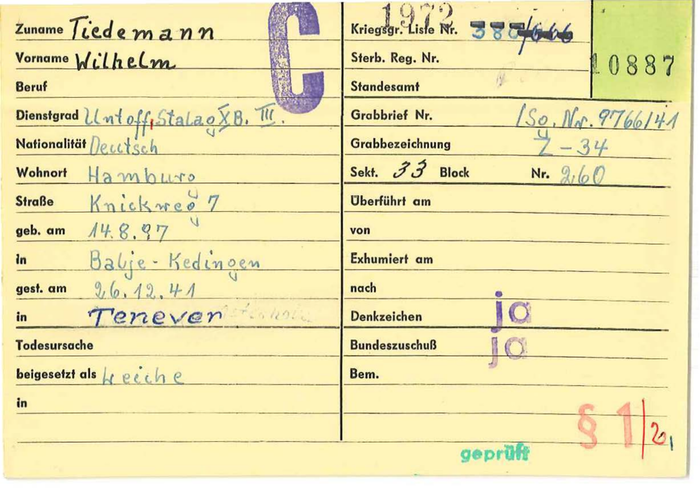 C
1972
Zuname Tiedemann
Vorname Wilhelm
Beruf
Dienstgrad Untoff, Stalag XB. III.
Nationalität Deutsch
Wohnort Hamburg
Straße Knickweg 7
geb. am 14.8.97
in Balje-Kedingen
gest. am 26.12.41
in Tenever
Todesursache
beigesetzt als Leiche
in
Kriegsgr. Liste Nr. 380/666
10887
Sterb. Reg. Nr.
Standesamt
Grabbrief Nr. /So. Nr. 9766/41
Grabbezeichnung Z-34
Sekt. 33 Block Nr. 260
Überführt am
von
Exhumiert am
nach
Denkzeichen ja
Bundeszuschuß ja
Bem.
§ 1/2,
geprüft